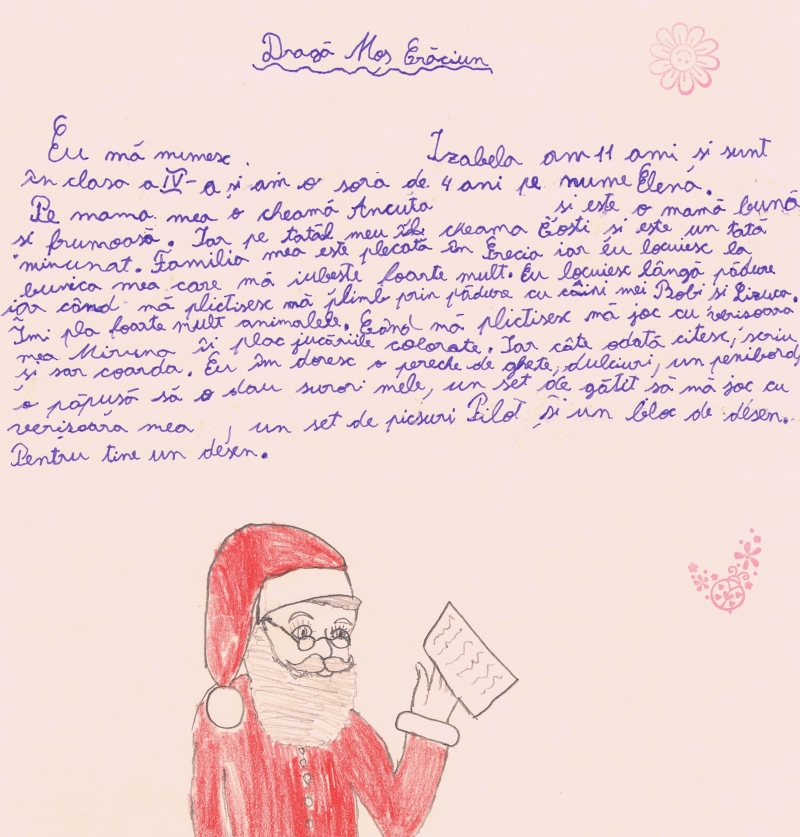 Dragă Moș Crăciun
Eu mă numesc. Izabela am 11 ani și sunt
în clasa a IV-a și am o soră de 4 ani pe nume Elena.
Pe mama mea o cheamă Ancuta și este o mamă bună
și frumoasă. Iar pe tatăl meu îl cheama Costi și este un tată
minunat. Familia mea este plecată în Grecia iar eu locuiesc la
bunica mea care mă iubește foarte mult. Eu locuiesc lângă pădure
iar când mă plictisesc mă plimb prin pădure cu câini mei Bobi si Lizuca.
Îmi pla foarte mult animalele. Când mă plictisesc mă joc cu verisoara
mea Miruna îi plac jucăriile colorate. Iar câte odată citesc, scriu
și sar coarda. Eu îm doresc o pereche de ghete, dulciuri, un penibord,
o păpusă să o dau surori mele, un set de gătit să mă joc cu
verișoara mea , un set de picsuri Pilot și un bloc de desen.
Pentru tine un desen.